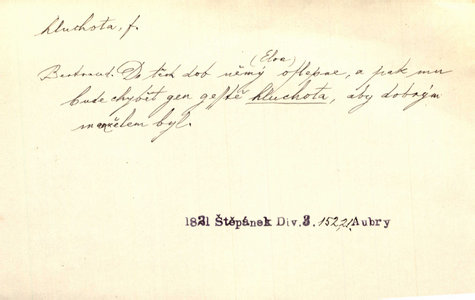 hluchota, f.
(Elou)
Bertrand: Do těch dob němý oslepne, a pak mu
bude chybět gen gesstě hluchota, aby dobrým
manželem byl.
1821 Štěpánek Div. 3. 152,21, Aubry